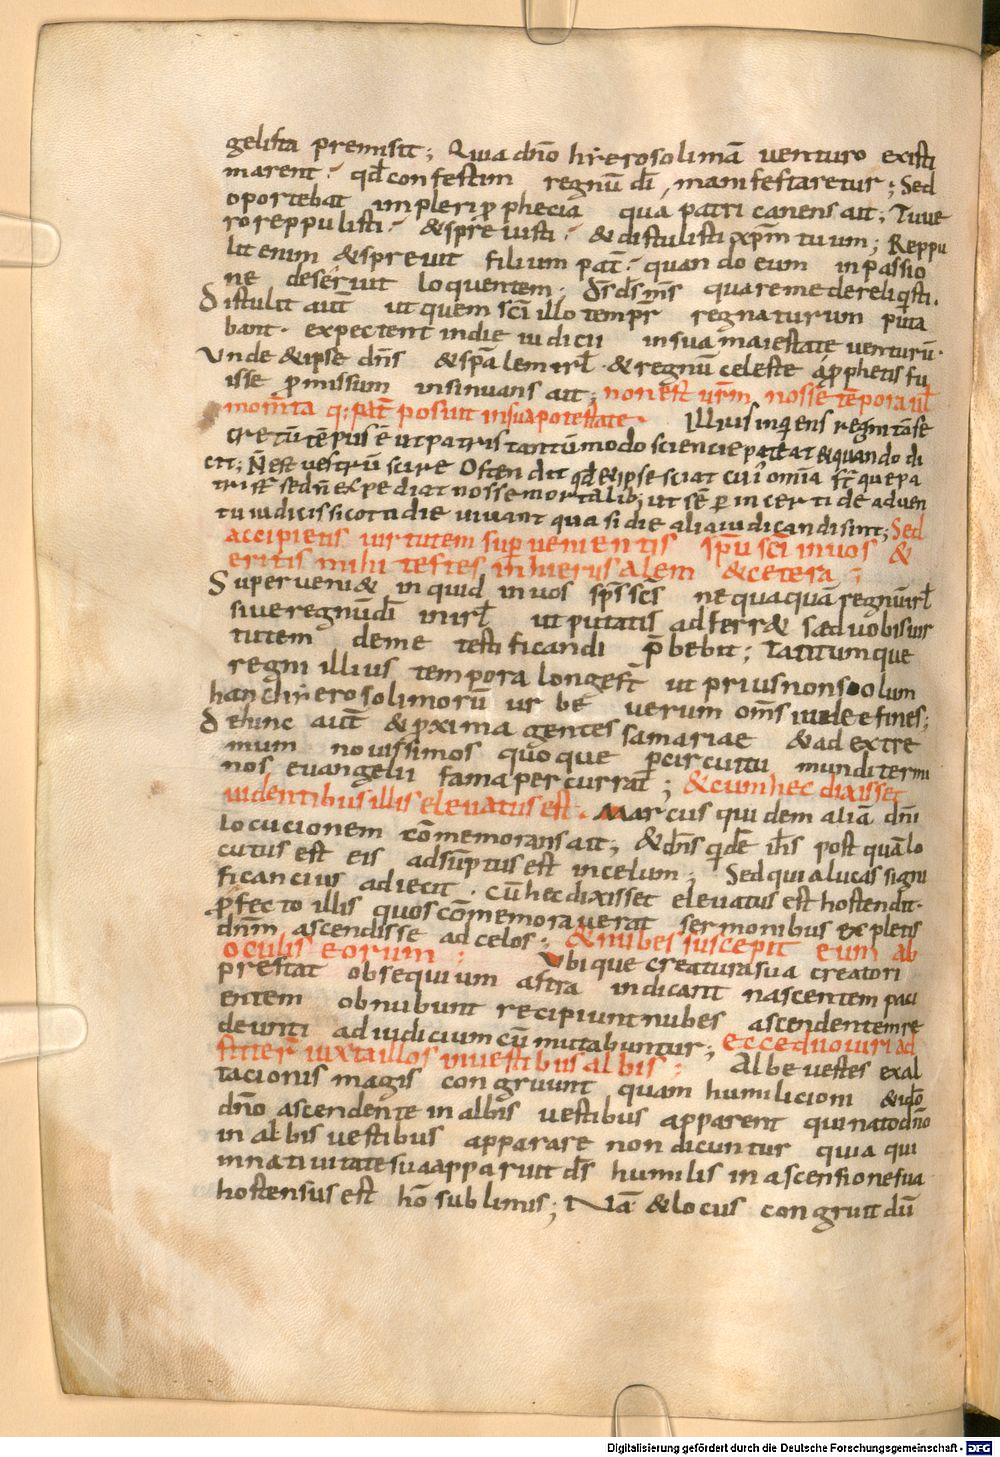 gelista premisit; Quia dn̄o hierosolimā venturo existi
marent· qđ confestim regnū dī manifestaretur; Sed
oportebat impleri ꝓphecia qua patri canens ait; Tu ve
ro reppulisti· & sprevisti· & distulisti xp̄m tuum; Reppu
lit enim & sprevit filium pat̄· quando eum in passio
ne deseruit loquentem· d̄s d̄s m̄s quare me dereliqisti·
Distulit aut̄ ut quem sc̄i illo tempr̄ regnaturum puta
bant· expectent in die iudicii in sua maiestate venturū·
Unde & ipse dn̄s & sp̄alem isrł· & regnū celeste a ꝓphetis fu
isse ꝓmissum insinuans ait; non est ur̄m nosse tēpora uł
momn̄ta q; pat̄ posuit in sua potestate· Illius inqiens regni tā se
cretū tēpus ē ut patris tantūmodo scientie pateat & quando di
cit; N̄ est vestrū scire Ostendit qđ & ipse sciat cui ōmia st̄ que pa
tris st̄ sed n̄ expediat nosse mortalib; ut sēꝑ incerti de adven
tu iudicis sic cotidie vivant quasi die alia iudicandi sint; Sed
accipietis virtutem supervenientis sp̄u sc̄i in vos &
eritis mihi testes in hierusalem & cetera;
Superveni& inquid in vos sp̄s sc̄s nequaquā regnū isrł
sive regnū dī in isrł ut putatis adferr& sæd vobis vir
tutem de me testificandi p̄bebit; Tatitumque
regni illius tempora longe st̄ ut prius non solum
hanc hierosolimorū urbē verum om̄s iudeę fines;
Dehinc aut̄ & ꝓxima gentes samariae & ad extre
mum novissimos quoque ꝑ circuitu mundi termi
nos evangelii fama percurrat̄; & cum hec dixisset
videntibus illis elevatus est· Marcus quidem aliā dn̄i
locucionem cōmemorans ait; & dn̄s qidē ih̄s postquā lo
cutus est eis adsūptus est in celum; Sed quia lucas signi
ficancius adiecit· Cū hec dixisset elevatus est hostendit·
ꝓfecto illis quos cōmemoraverat sermonibus expletis
dn̄m ascendisse ad celos; & nubes suscepit eum ab
oculis eorum; Ubique creatura sua creatori
prestat obsequium astra indicant nascentem paci
entem obnubunt recipiunt nubes ascendentem re
deunti ad iudicium cū mittabuntur; Ecce duo viri ad
stiter̄ iuxta illos in vestibus albis; Albe vestes exal
tacionis magis congruunt quam humilicioni & ido
dn̄o ascendente in albis vestibus apparent qui nato dn̄o
in albis vestibus apparare non dicuntur quia qui
in nativitate sua apparuit d̄s humilis in ascensione sua
hostensus est hō sublimis; Nā & locus congruit dū
Digitalisierung gefördert durch die Deutsche Forschungsgemeinschaft - DFG